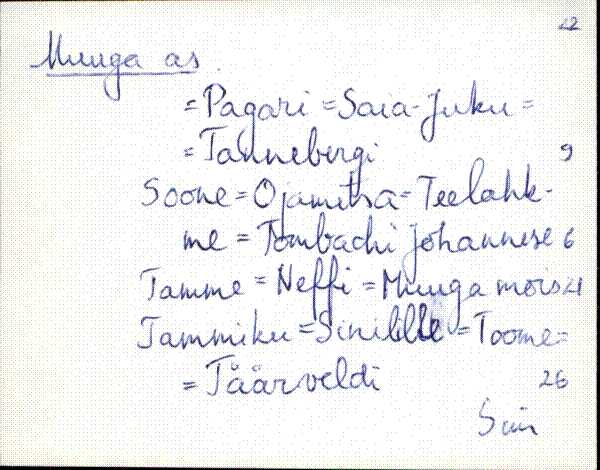 22
Muuga as.
= Pagari = Saia-Juku =
= Tannebergi 9
Soone = Ojametsa = Teelahk-
me = Tombachi Johannese 6
Tamme = Neffi = Muuga mõis 21
Tammiku = Sinilille = Toome =
= Täärveldi 26